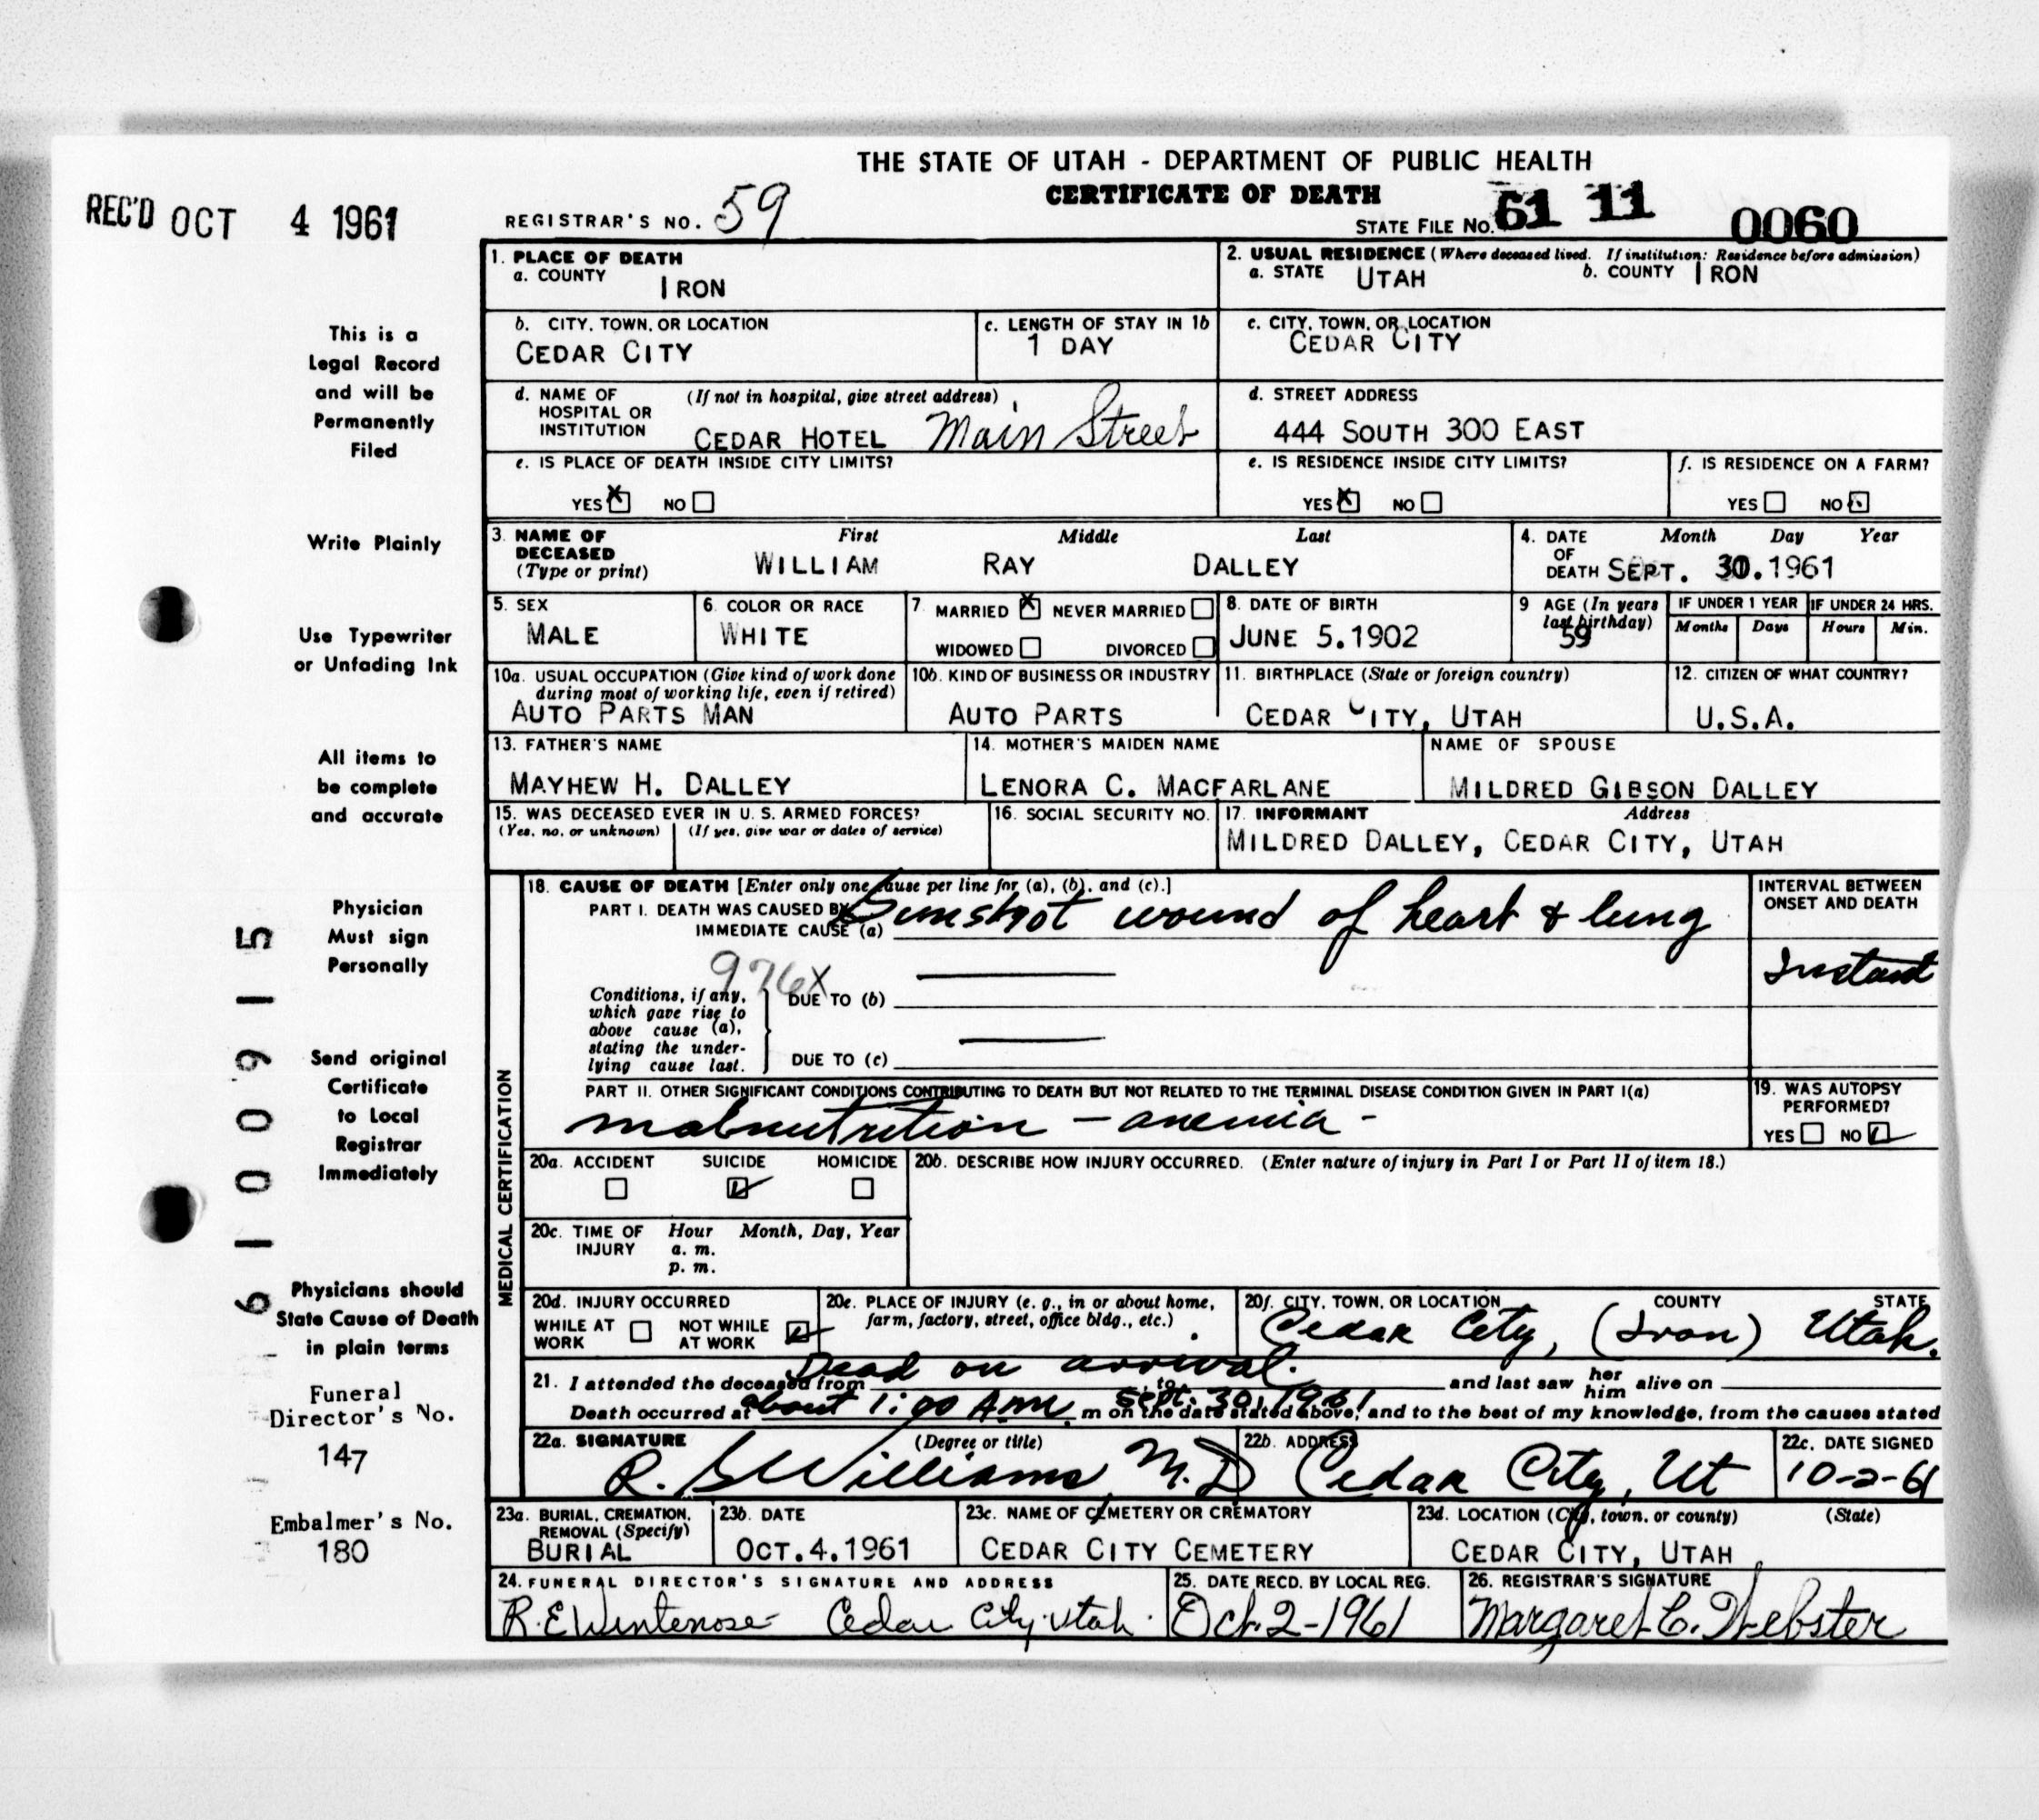 THE STATE OF UTAH - DEPARTMENT OF PUBLIC HEALTH
CERTIFICATE OF DEATH
REC'D OCT 4 1961
REGISTRAR'S NO. 59
STATE FILE NO. 61 11 0060
1. PLACE OF DEATH
a. COUNTY
IRON
2. USUAL RESIDENCE (Where deceased lived. If institution: Residence before admission)
a. STATE UTAH b. COUNTY IRON
b. CITY, TOWN, OR LOCATION
CEDAR CITY
c. LENGTH OF STAY IN 1b
1 DAY
c. CITY, TOWN, OR LOCATION
CEDAR CITY
d. NAME OF HOSPITAL OR INSTITUTION
(If not in hospital, give street address)
CEDAR HOTEL Main Street
d. STREET ADDRESS
444 SOUTH 300 EAST
e. IS PLACE OF DEATH INSIDE CITY LIMITS?
YES X NO
e. IS RESIDENCE INSIDE CITY LIMITS?
YES X NO
f. IS RESIDENCE ON A FARM?
YES NO
3. NAME OF DECEASED (Type or print)
First Middle Last
WILLIAM RAY DALLEY
4. DATE OF DEATH
Month Day Year
SEPT. 30.1961
5. SEX
MALE
6. COLOR OR RACE
WHITE
7. MARRIED X NEVER MARRIED
WIDOWED DIVORCED
8. DATE OF BIRTH
JUNE 5.1902
9 AGE (In years last birthday)
59
IF UNDER 1 YEAR IF UNDER 24 HRS.
Months Days Hours Min.
10a. USUAL OCCUPATION (Give kind of work done during most of working life, even if retired)
AUTO PARTS MAN
10b. KIND OF BUSINESS OR INDUSTRY
AUTO PARTS
11. BIRTHPLACE (State or foreign country)
CEDAR CITY, UTAH
12. CITIZEN OF WHAT COUNTRY?
U.S.A.
13. FATHER'S NAME
MAYHEW H. DALLEY
14. MOTHER'S MAIDEN NAME
LENORA C. MACFARLANE
NAME OF SPOUSE
MILDRED GIBSON DALLEY
15. WAS DECEASED EVER IN U. S. ARMED FORCES?
(Yes, no, or unknown) (If yes, give war or dates of service)
16. SOCIAL SECURITY NO.
17. INFORMANT Address
MILDRED DALLEY, CEDAR CITY, UTAH
MEDICAL CERTIFICATION
18. CAUSE OF DEATH [Enter only one cause per line for (a), (b), and (c).]
PART I. DEATH WAS CAUSED BY:
IMMEDIATE CAUSE (a) Gunshot wound of heart & lung
INTERVAL BETWEEN ONSET AND DEATH
Instant
976X
Conditions, if any, which gave rise to above cause (a), stating the underlying cause last.
DUE TO (b)
DUE TO (c)
PART II. OTHER SIGNIFICANT CONDITIONS CONTRIBUTING TO DEATH BUT NOT RELATED TO THE TERMINAL DISEASE CONDITION GIVEN IN PART I(a)
malnutrition - anemia -
19. WAS AUTOPSY PERFORMED?
YES NO
20a. ACCIDENT SUICIDE HOMICIDE
20b. DESCRIBE HOW INJURY OCCURRED. (Enter nature of injury in Part I or Part II of item 18.)
20c. TIME OF INJURY
Hour Month, Day, Year
a. m.
p. m.
20d. INJURY OCCURRED
WHILE AT WORK NOT WHILE AT WORK
20e. PLACE OF INJURY (e. g., in or about home, farm, factory, street, office bldg., etc.)
20f. CITY, TOWN, OR LOCATION COUNTY STATE
Cedar City, (Iron) Utah.
Dead on arrival.
21. I attended the deceased from to and last saw her him alive on
Death occurred at about 1:00 A.M. m on the date stated above, and to the best of my knowledge, from the causes stated
Sept. 30, 1961
22a. SIGNATURE (Degree or title)
R. S Williams, M.D
22b. ADDRESS
Cedar City, Ut
22c. DATE SIGNED
10-2-61
23a. BURIAL, CREMATION, REMOVAL (Specify)
BURIAL
23b. DATE
OCT.4.1961
23c. NAME OF CEMETERY OR CREMATORY
CEDAR CITY CEMETERY
23d. LOCATION (City, town, or county) (State)
CEDAR CITY, UTAH
24. FUNERAL DIRECTOR'S SIGNATURE AND ADDRESS
R. E Cedar City. Utah.
25. DATE RECD. BY LOCAL REG.
Oct. 2-1961
26. REGISTRAR'S SIGNATURE
Margaret C. Webster
This is a
Legal Record
and will be
Permanently
Filed
Write Plainly
Use Typewriter
or Unfading Ink
All items to
be complete
and accurate
Physician
Must sign
Personally
Send original
Certificate
to Local
Registrar
Immediately
Physicians should
State Cause of Death
in plain terms
Funeral
Director's No.
147
Embalmer's No.
180
61 0 0 9 1 5